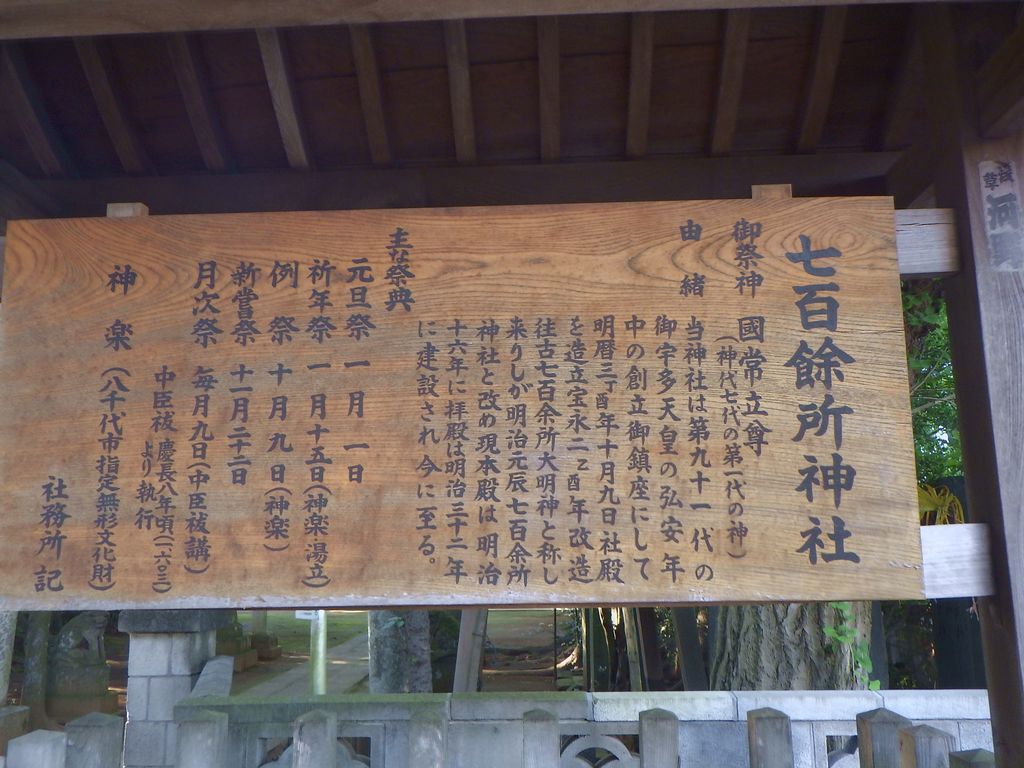 七百餘所神社
御祭神 國常立尊
(神代七代の第一代の神)
由緒 当神社は第九十一代の
御宇多天皇の弘安年
中の創立御鎮座にして
明暦三丁酉年十月九日社殿
を造立宝永二乙酉年改造
往古七百余所大明神と称し
来りしが明治元辰七百余所
神社と改め現本殿は明治
十六年に拝殿は明治三十二年
に建設され今に至る。
主な祭典
元旦祭 一月一日
祈年祭 一月十五日(神楽湯立)
例祭 十月九日(神楽)
新嘗祭 十一月二十二日
月次祭 毎月九日(中臣祓講)
中臣祓 慶長八年頃(一六〇三)
より執行
神楽 (八千代市指定無形文化財)
社務所記